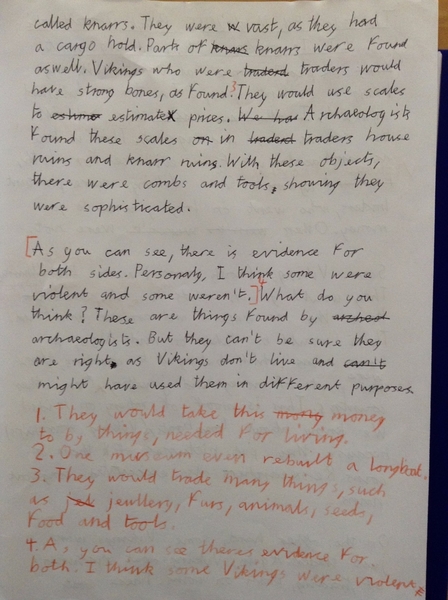 called knarrs. They were vast, as they had
a cargo hold. Parts of knarrs knarrs were found
aswell. Vikings who were traderd traders would
have strong bones, as found.3 They would use scales
to estimate prices. We had Archaeologists
found these scales on in traderd traders house
ruins and knarr ruins. With these objects,
there were combs and tools, showing they
were sophisticated.
[As you can see, there is evidence for
both sides. Personaly, I think some were
violent and some weren't.]4 What do you
think? These are things found by
archaeologists. But they can't be sure they
are right, as Vikings don't live and can't
might have used them in different purposes.
1. They would take this many money
to by things, needed for living.
2. One museum even rebuilt a longboat.
3. They would trade many things, such
as jewllery, furs, animals, seeds,
food and tools.
4. As you can see theres evidence for
both. I think some Vikings were violent